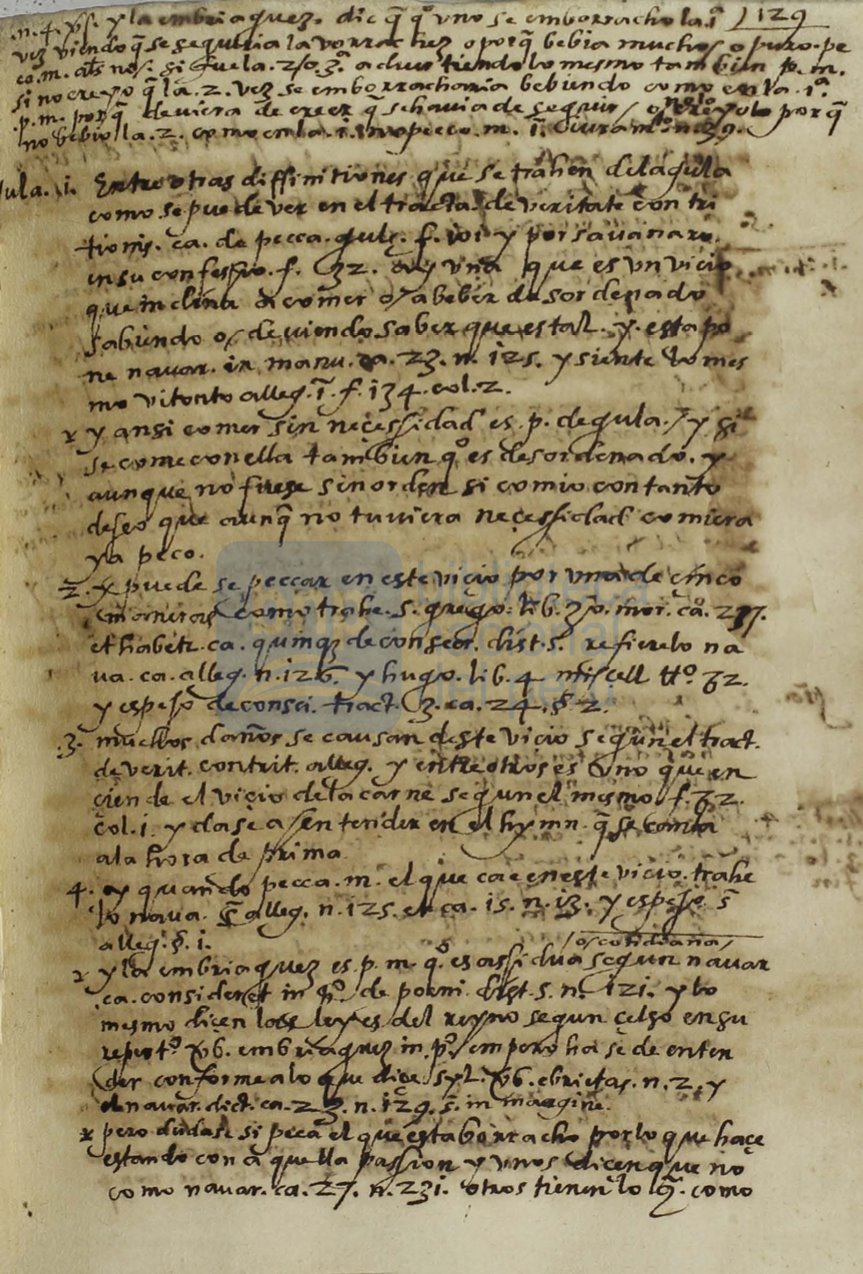 .n.4. ỹs. y la embriaguez. dic q̃ qº uno se emborracho la .1ª 129
vez viendo q̃ se seguiria la vorrachez o porq̃ bebia mucho o puro. pe
co. m. si fue la .2. o .3ª advirtiendo lo mesmo tambien p. m.
si no creyo q̃ la .2. vez se emborracharia bebiendo como en la .1ª
.p. m. porq̃ deviera de creer q̃ se havia de seguir o porq̃
no bebio la .2. como en la .1. no pecco. m.
gula. .1. Entre otras diffinitiones que se trahen de la gula
como se puede ver en el tracta. de veritate contri
tionis. ca. de pecca. gulę. f. 101 y por savanaro.
en su confessio. f. 32. ay una que es un vicio
que inclina a comer o/ a beber desordenado
sabiendo o/ deviendo saber que es tal. y esta po
ne navar. in manu. ca. 23. n. 125. y siente lo mes
mo vitorito alleg. 1. f. 134. col. 2.
y ansi comer sin neçessidad es .p. de gula. / y si
se come con ella tambien qº es desordenado. y
aunque no fuese sin orden si comio con tanto
deseo que aunq̃ no tuviera neçessidad comiera
ya peco.
.2. y puede se peccar en este viçio por una de çinco
maneras como trahe. s. grego. lib. 30. mor. ca. 27.
et habetr. ca. quinqz de consecr. dist. 5. refierelo na
va. ca. alleg. n. 126. y hugo. lib. 4 miscell. ttº 32.
y espejo de consci. tract. 3. ca. 24. §. 2.
.3. muchos daños se causan deste vicio segun el tract.
de verit. contrit. alleg. y entre otros es uno que en
çiende el viçio de la carne segun el mesmo. f. 32.
col. 1. y dase a entender en el hymn. q̃ se canta
a la hora de prima
4. y quando pecca. m. el que cae en este vicio. trahe
lo nava. alleg. n. 125. et ca. 15. n. 13. y espejo
alleg. §. 1. / o cotidiana /
y la embriaguez es .p. m. qº es assidua segun navar
ca. consideret in pº. de poeni. dist. 5. n. 121. y lo
mesmo dicen las leyes del reyno segun çelso en su
repertº v̄b. embriaguez in pº. empero ha se de enten
der conforme a lo que diçe. syl. v̄b. ebrietas. n. 2. y
navar. dict. ca. 23. n. 129. in margine.
pero dudase si peca el que esta borracho por lo que haçe
estando con aquella passion y unos dicen que no
como navar. ca. 27. n. 231. otros tienen lo como